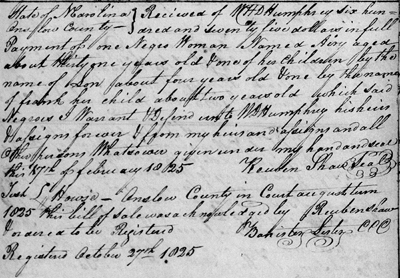 State of N Carolina } Received of W H D Humphrey six hun
Onslow County — } dred and seventy five dollars in full
Payment of one Negro Woman Named aged
about thirty one years old & one of her Children by the
name of about four years old & one by the name
of frank her child about two years old which said
Negroes I Warrant & Defend unto W D Humphrey his heirs
& assigns forever & from my heirs and assigns and all
Other persons Whatsoever given under my hand and seal
this 15th of february 1825 Reuben Shaw Seal
Test L Howard — Onslow County in Court august term
1825 this bill of Sale was acknowledged by Reuben Shaw
& ordered to be Registered Bakister Lester CCC
Registered October 27th 1825